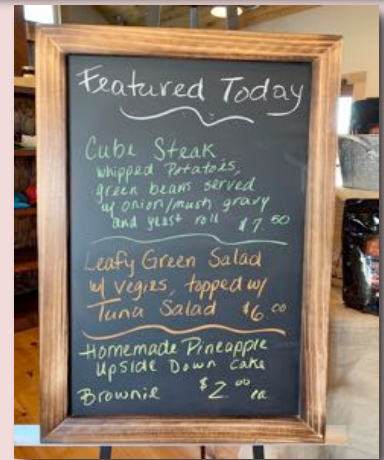 Featured Today
Cube Steak
whipped Potatoes,
green beans served
w/ onion/mush gravy
and yeast roll $7.50
Leafy Green Salad
w/ vegies, topped w/
Tuna Salad $6.00
Homemade Pineapple
Upside Down Cake
Brownie $2.00 ea